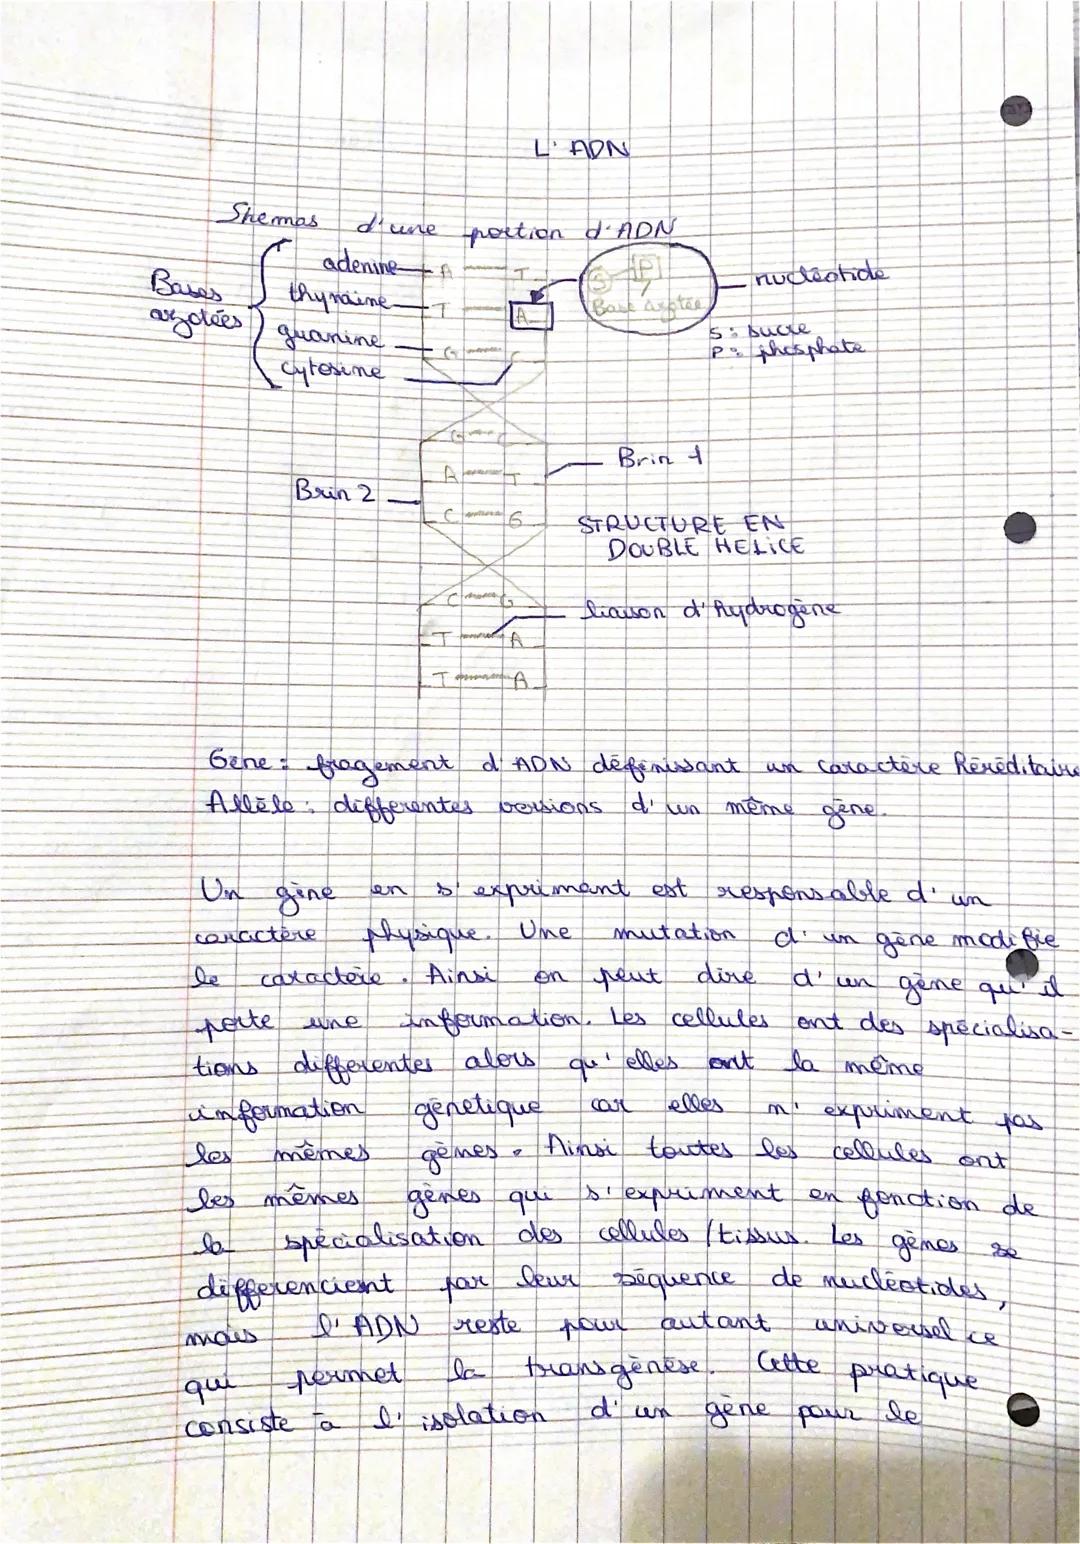 L'ADN
Shemas d'une portion d'ADN
Bases azotées
adenine
thymine
guanine
cytosine
A T
T A
G C
S P
Base azotée
nucléotide
S : sucre
P : phosphate
G C
A T
C G
Brin 1
Brin 2
STRUCTURE EN
DOUBLE HELICE
C G
T A
T A
liaison d'hydrogène
Gène : fragement d'ADN définissant un caractère héréditaire
Allèle : differentes versions d'un même gène.
Un gène en s'expriment est responsable d'un
caractère physique. Une mutation d'un gène modifie
le caractère. Ainsi on peut dire d'un gène qu'il
porte une information. Les cellules ont des spécialisa-
tions differentes alors qu'elles ont la même
information génetique car elles n'expriment pas
les mêmes gènes. Ainsi toutes les cellules ont
les mêmes gènes qui s'expriment en fonction de
la spécialisation des cellules/tissus. Les gènes se
differencient par leur séquence de nucléotides,
mais l'ADN reste pour autant universel ce
qui permet la transgénèse. Cette pratique
consiste à l'isolation d'un gène pour le